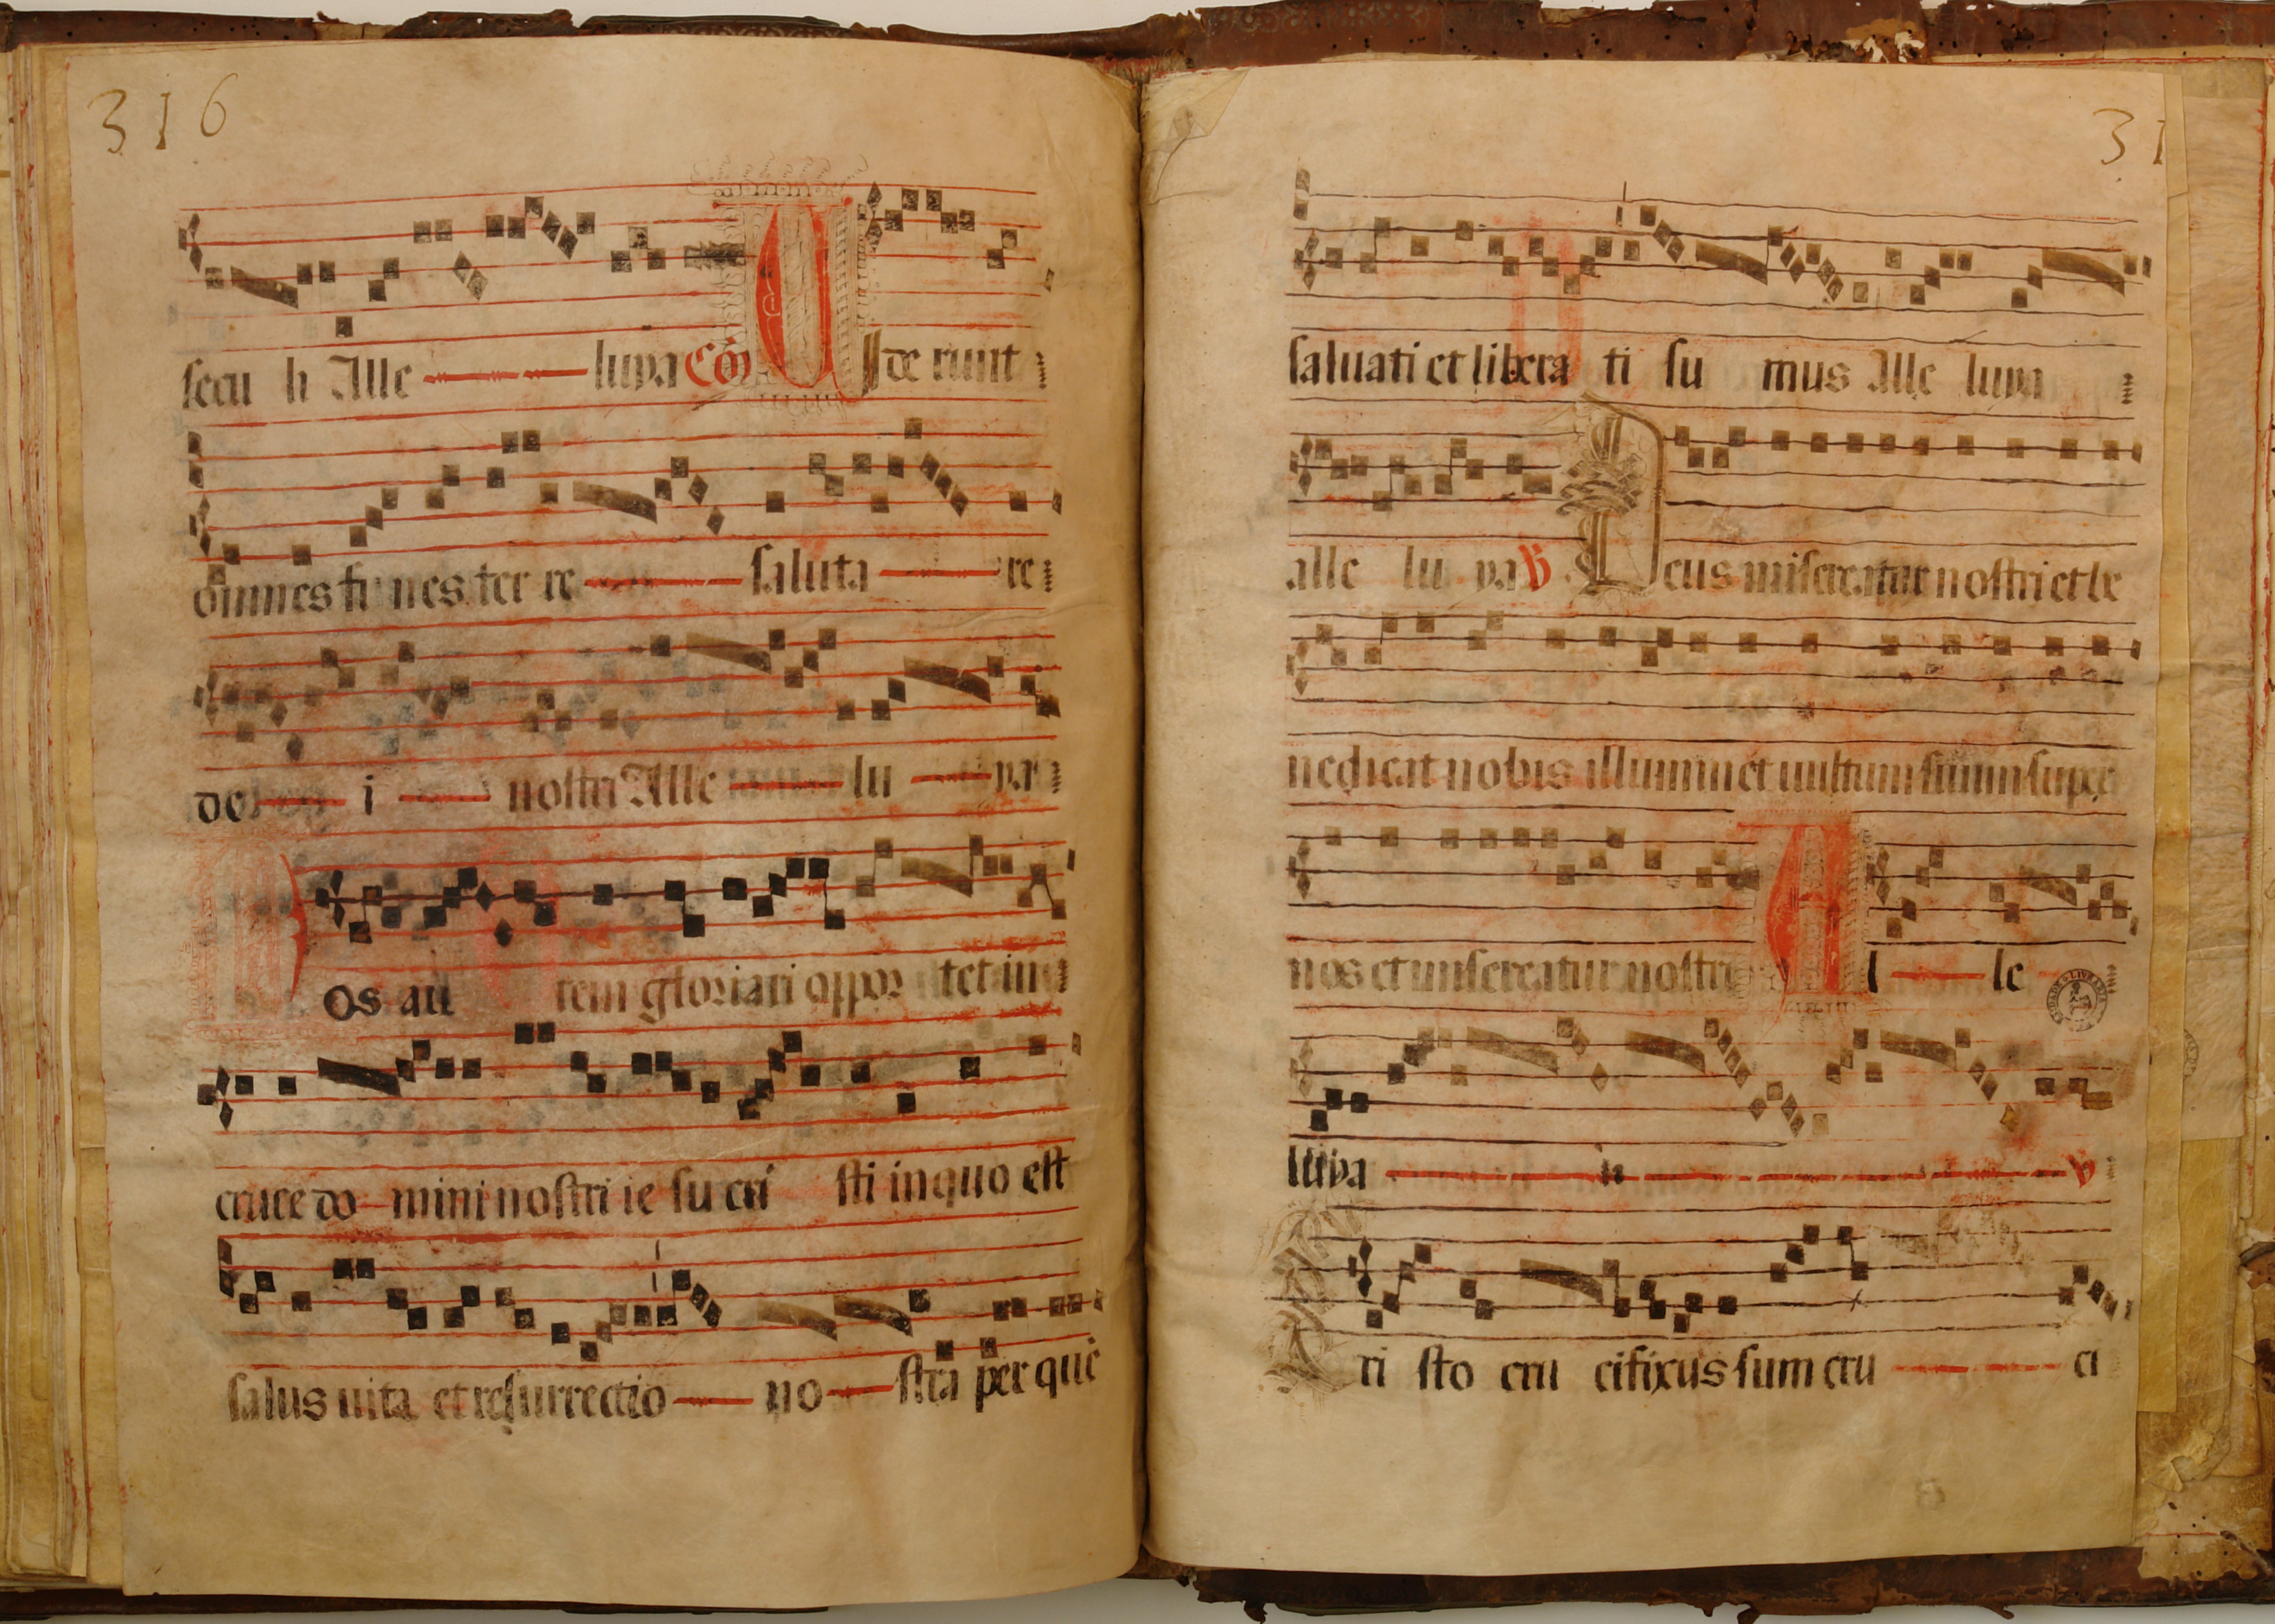 316
secu li Alle luya Cō V I de runt
omnes fi nes ter re saluta re
de i nostri Alle lu ya
N os au tem gloriari oppor tet in
cruce do mini nostri ie su cri sti in quo est
salus uita et resurrectio no stra per quē
31
saluati et libera ti su mus Alle luya
alle lu ya ℣ D eus misereatur nostri et be
nedicat nobis illuminet uultum suum super
nos et misereatur nostri A l le
luya ii ℣
ri sto cru cifixus sum cru ci